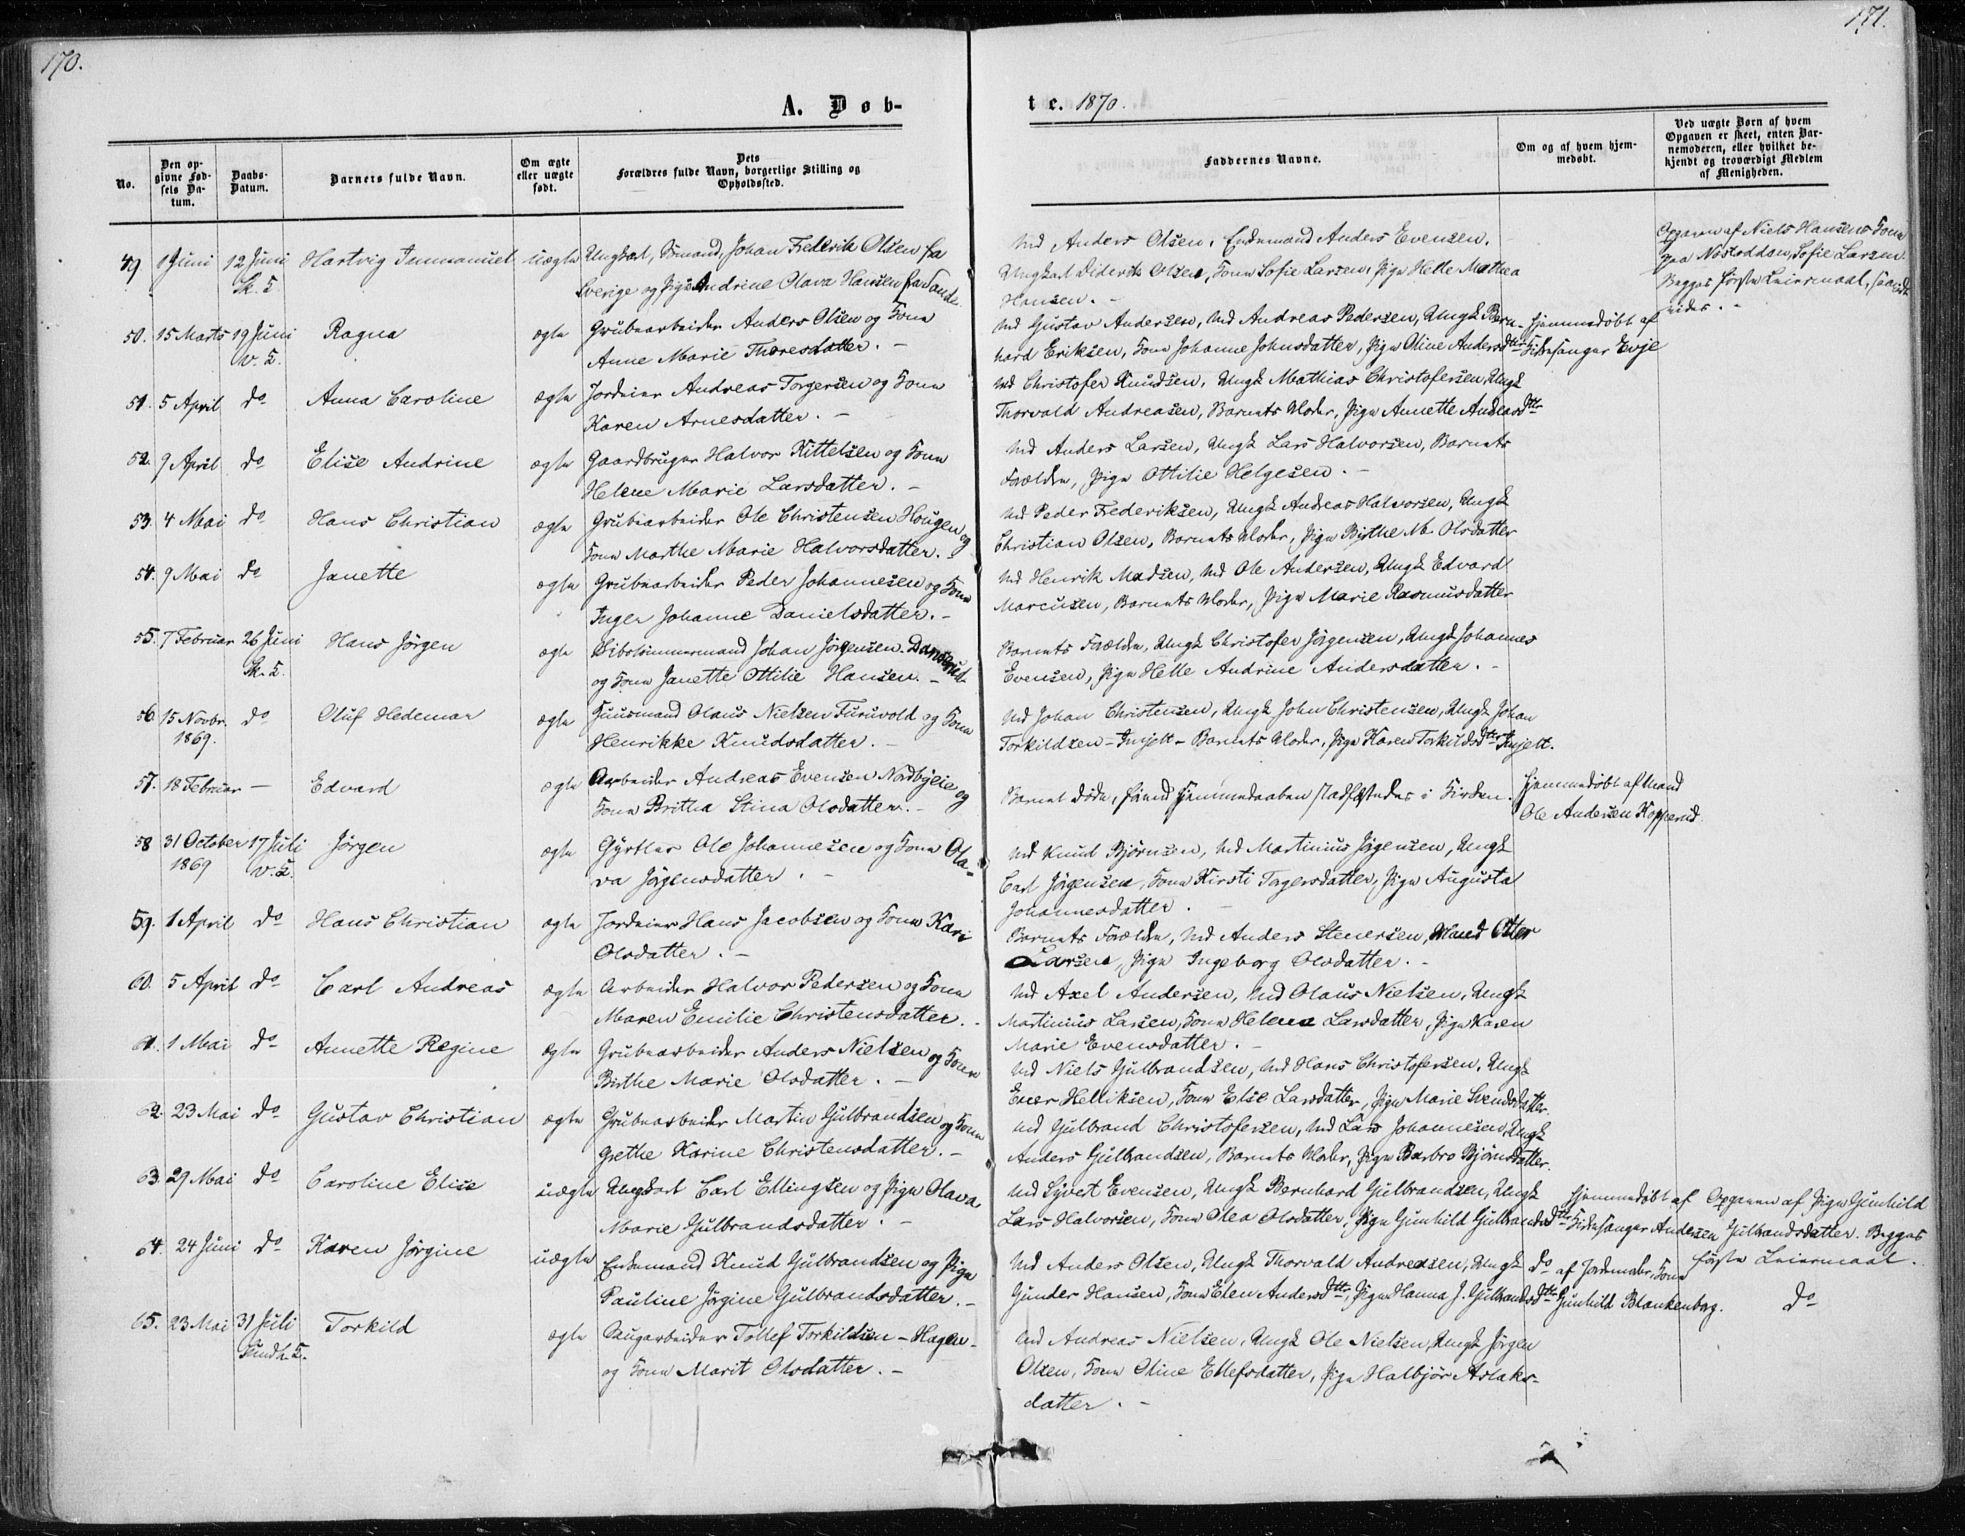 170.
171.
A. Døb-
te. 1870.
No.
Den op-
givne Fød-
sels Da-
tum.
Daabs-
Datum.
Barnets fulde Navn.
Om ægte
eller uægte
født.
Dets
Forældres fulde Navn, borgerlige Stilling og
Opholdssted.
Faddernes Navne.
Om og af hvem hjem-
medøbt.
Ved uægte Børn af hvem
Opgaven er skeet, enten Bar-
nemoderen, eller hvilket be-
kjendt og troværdigt Medlem
af Menigheden.
49 1 Juni 12 Juni Hartvig Immanuel uægte Ungkarl, Johan Frederik Olsen fra
Sk. K.
Sverige og Pige Andrine Olava Hansen fra
Md Anders Olsen, Enkemand Anders Evensen,
Ungkarl Diderik Olsen, Kone Sofie Larsen, Pige Helle Mathea
Hansen. -
Opgaven af Niels Hansens Kone
paa Notodden, Sofie Larsen.
Begges første Leiermaal,
50. 15 Marts 19 Juni Ragna ægte Grubearbeider Anders Olsen og Kone
V. K.
Anne Marie Thoresdatter. -
Md Gustav Andersen, Md Andreas Pedersen, Ungk Bern-
hard Eriksen, Kone Johanne Johnsdatter, Pige Oline Andersdtt
Hjemmedøbt af
Kirkesanger Evje
51. 5 April do Anna Caroline ægte Jordeier Andreas Torgersen og Kone
Karen Arnesdatter. -
Md Christofer Knudsen, Ungk Mathias Christofersen, Ungk
Thorvald Andreasen, Barnets Moder, Pige Annette Andreasdtt
52. 9 April do Elise Andrine ægte Gaardbruger Halvor Kittelsen og Kone
Helene Marie Larsdatter. -
Md Anders Larsen, Ungk Lars Halvorsen, Barnets
Forældre, Pige Ottilie Helgesen. -
53. 4 Mai do Hans Christian ægte Grubearbeider Ole Christensen Hougen og
Kone Marthe Marie Halvorsdatter. -
Md Peder Frederiksen, Ungk Andreas Halvorsen, Ungk
Christian Olsen, Barnets Moder, Pige Birthe M. Olsdatter
54. 9 Mai do Janette ægte Grubearbeider Peder Johannesen og Kone
Inger Johanne Danielsdatter. -
Md Henrik Madsen, Md Ole Andersen, Ungk Edvard
Marcusen, Barnets Moder, Pige Marie Rasmusdatter
55. 7 Februar 26 Juni Hans Jörgen ægte Johan Jörgensen
Sk. K.
og Kone Janette Ottilie Hansen. -
Barnets Forældre, Ungk Christofer Jörgensen, Ungk Johannes
Evensen, Pige Helle Andrine Andersdatter. -
56. 15 Novbr. do Oluf Hedemar ægte Huusmand Olaus Nielsen Furuvold og Kone
1869.
Henrikke Knudsdatter. -
Md Johan Christensen, Ungk John Christensen, Ungk Johan
Torkildsen - Imjelt - Barnets Moder, Pige Karen Torkildsdtt Imjelt.
57. 18 Februar - Edvard ægte Arbeider Andreas Evensen Nordbyeie og
Kone Britha Stina Olsdatter. -
Barnet døde, førend Hjemmedaaben stadfæstedes i Kirken.
Hjemmedøbt af Mand
Ole Andersen Kopperud.
58 31 October 17 Juli Jörgen ægte Gyrtler Ole Johannesen og Kone Ola-
1869 V. K.
va Jörgensdatter. -
Md Knud Björnsen, Md Martinius Jörgensen, Ungk
Carl Jörgensen, Kone Kirsti Torgersdatter, Pige Augusta
Johannesdatter. -
59. 1 April do Hans Christian ægte Jordeier Hans Jacobsen og Kone Kari
Olsdatter. -
Barnets Forældre, Md Anders Stenersen, Mand Otter
Larsen, Pige Ingeborg Olsdatter. -
60. 5 April do Carl Andreas ægte Arbeider Halvor Pedersen og Kone
Maren Emilie Christensdatter. -
Md Axel Andersen, Md Olaus Nielsen, Ungk
Martinius Larsen, Kone Helene Larsdatter, Pige Karen
Marie Evensdatter. -
61. 1 Mai do Annette Regine ægte Grubearbeider Anders Nielsen og Kone
Birthe Marie Olsdatter. -
Md Niels Gulbrandsen, Md Hans Christofersen, Ungk
Ener Helliksen, Kone Else Larsdatter, Pige Marie Svendsdatter.
62. 23 Mai do Gustav Christian ægte Grubearbeider Martin Gulbrandsen og Kone
Grethe Karine Christensdatter. -
Md Gulbrand Christofersen, Md Lars Johannesen, Ungk
Anders Gulbrandsen, Barnets Moder, Pige Barbro Björnsdatter.
63. 29 Mai do Caroline Elise uægte Ungkarl Carl Ellingsen og Pige Olava
Marie Gulbrandsdatter. -
Md Syvert Evensen, Ungk Bernhard Gulbrandsen, Ungk
Lars Halvorsen, Kone Olea Olsdatter, Pige Gunhild Gulbrandsdtt
Hjemmedøbt af
Kirkesanger Andersen
Opgaven af Pige Gunhild
Gulbrandsdatter. Begges
første Leiermaal.
64. 24 Juni do Karen Jörgine uægte Enkemand Knud Gulbrandsen og Pige
Pauline Jörgine Gulbrandsdatter. -
Md Anders Olsen, Ungk Thorvald Andreasen, Ungk
Gunder Hansen, Kone Elen Andersdtt, Pige Hanna J. Gulbrandsdtt
do af Jordmoder, Kone
Gunhild Blankenborg.
do
65. 23 Mai 31 Juli Torkild ægte Saugarbeider Tollef Torkildsen - Hagen -
og Kone Marit Olsdatter. -
Md Andreas Nielsen, Ungk Ole Nielsen, Ungk Jörgen
Olsen, Kone Oline Ellefsdatter, Pige Halbjör Aslaks-
datter. -